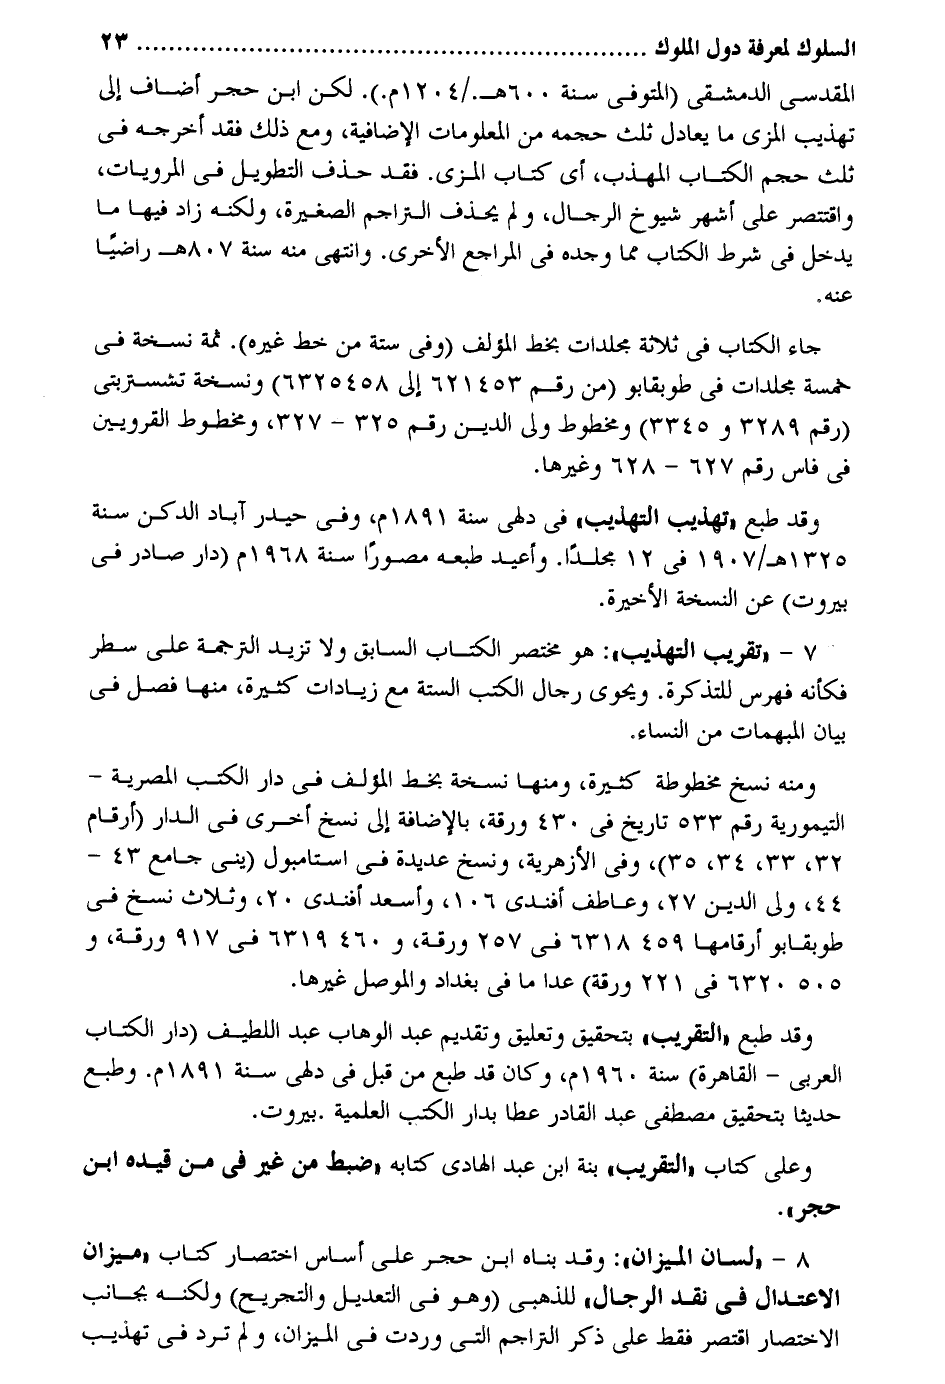 السلوك لمعرفة دول الملوك ................................................................ ٢٣
المقدسى الدمشقى (المتوفى سنة ٦٠٠هـ/١٢٠٤م.). لكن ابن حجر أضاف إلى
تهذيب المزى ما يعادل ثلث حجمه من المعلومات الإضافية، ومع ذلك فقد أخرجه فى
ثلث حجم الكتاب المهذب، أى كتاب المزى. فقد حذف التطويل فى المرويات،
واقتصر على أشهر شيوخ الرجال، و لم يحذف التراجم الصغيرة، ولكنه زاد فيها ما
يدخل فى شرط الكتاب مما وجده فى المراجع الأخرى. وانتهى منه سنة ٨٠٧هـ راضيًا
عنه.
جاء الكتاب فى ثلاثة مجلدات بخط المؤلف (وفى ستة من خط غيره). ثمة نسخة فى
خمسة مجلدات فى طوبقابو (من رقم ٦٢١٤٥٣ إلى ٦٣٢٥٤٥٨) ونسخة تشستربتى
(رقم ٣٢٨٩ و ٣٣٤٥) ومخطوط ولى الدين رقم ٣٢٥ – ٣٢٧، ومخطوط القرويين
فى فاس رقم ٦٢٧ – ٦٢٨ وغيرها.
وقد طبع «تهذيب التهذيب» فى دلهى سنة ١٨٩١م، وفى حيدر آباد الدكن سنة
١٣٢٥هـ/١٩٠٧ فى ١٢ مجلدًا. وأعيد طبعه مصورًا سنة ١٩٦٨م (دار صادر فى
بيروت) عن النسخة الأخيرة.
٧ – «تقريب التهذيب»: هو مختصر الكتاب السابق ولا تزيد الترجمة على سطر
فكأنه فهرس للتذكرة. ويحوى رجال الكتب الستة مع زيادات كثيرة، منها فصل فى
بيان المبهمات من النساء.
ومنه نسخ مخطوطة كثيرة، ومنها نسخة بخط المؤلف فى دار الكتب المصرية –
التيمورية رقم ٥٣٣ تاريخ فى ٤٣٠ ورقة، بالإضافة إلى نسخ أخرى فى الدار (أرقام
٣٢، ٣٣، ٣٤، ٣٥)، وفى الأزهرية، ونسخ عديدة فى استامبول (ينى جامع ٤٣ –
٤٤، ولى الدين ٢٧، وعاطف أفندى ١٠٦، وأسعد أفندى ٢٠، وثلاث نسخ فى
طوبقابو أرقامها ٤٥٩ ٦٣١٨ فى ٢٥٧ ورقة، و ٤٦٠ ٦٣١٩ فى ٩١٧ ورقة، و
٥٠٥ ٦٣٢٠ فى ٢٢١ ورقة) عدا ما فى بغداد والموصل غيرها.
وقد طبع «التقريب» بتحقيق وتعليق وتقديم عبد الوهاب عبد اللطيف (دار الكتاب
العربى – القاهرة) سنة ١٩٦٠م، وكان قد طبع من قبل فى دلهى سنة ١٨٩١م. وطبع
حديثا بتحقيق مصطفى عبد القادر عطا بدار الكتب العلمية .بيروت.
وعلى كتاب «التقريب» بنة ابن عبد الهادى كتابه «ضبط من غير فى من قيده ابن
حجر».
٨ – «لسان الميزان»: وقد بناه ابن حجر على أساس اختصار كتاب «ميزان
الاعتدال فى نقد الرجال» للذهبى (وهو فى التعديل والتجريح) ولكنه بجانب
الاختصار اقتصر فقط على ذكر التراجم التى وردت فى الميزان، و لم ترد فى تهذيب